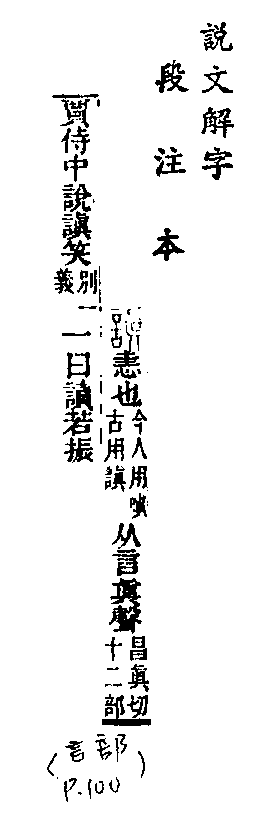 說文解字
段注本
恚也今人用嗔古用謓从言眞聲昌眞切十二部
賈侍中說謓笑別一義一曰讀若振
(言部
P.100)